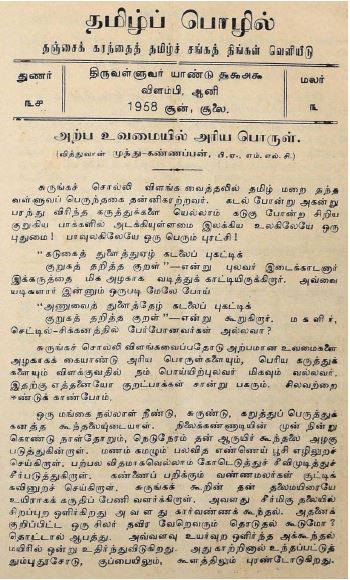 தமிழ்ப் பொழில்
தஞ்சைக் கரந்தைத் தமிழ்ச் சங்கத் திங்கள் வெளியீடு
துணர்
திருவள்ளுவர் யாண்டு
மலர்
விளம்பி, ஆனி
1958 சூன், சூலை.
அற்ப உவமையில் அரிய பொருள்.
(வித்துவான் முத்து-கண்ணப்பன், பி. ஏ. எம். எல். சி.)
சுருங்கச் சொல்லி விளங்க வைத்தலில் தமிழ் மறை தந்த
வள்ளுவப் பெருந்தகை தன்னிகரற்றவர். கடல் போன்று அகன்று
பரந்து விரிந்த கருத்துக்களை யெல்லாம் கடுகு போன்ற சிறிய
குறுகிய பாக்களில் அடக்கியுள்ளமை இலக்கிய உலகிலேயே ஒரு
புதுமை! பாவுலகிலேயே ஒரு பெரும் புரட்சி!
"கடுகைத் துளைத்துஏழ் கடலைப் புகட்டிக்
குறுகத் தறித்த குறள்"—என்று புலவர் இடைக்காடனார்
இக்கருத்தை மிக அழகாக வடித்துக் காட்டியிருக்கிறார். அவ்வை
யடிகளார் இன்னும் ஒருபடி மேலே போய்
"அணுவைத் துளைத்தேழ் கடலைப் புகட்டிக்
குறுகத் தறித்த குறள்"—என்று கூறுகிறார். மகளிர்,
செட்டில்-சிக்கனத்தில் பேர்போனவர்கள் அல்லவா?
சுருங்கச் சொல்லி விளங்கவைப்பதோடு அற்பமான உவமைகளை
அழகாகக் கையாண்டு அரிய பொருள்களையும், பெரிய கருத்துக்
களையும் விளக்குவதில் நம் பொய்யிற்புலவர் மிகவும் வல்லவர்.
இதற்கு எத்தனையோ குறட்பாக்கள் சான்று பகரும். சிலவற்றை
ஈண்டுக் காண்போம்.
ஒரு மங்கை நல்லாள் நீண்டு, சுருண்டு, கறுத்துப் பெருத்துக்
கனத்த கூந்தலையுடையாள். நிலைக்கண்ணாடியின் முன் நின்று
கொண்டு நாள்தோறும், நெடுநேரம் தன் ஆருயிர்க் கூந்தலை அழகு
படுத்துகின்றாள். மணம் கமழும் பலவித எண்ணெய் பூசி எழிலுறச்
செய்கிறாள். பற்பல விதமாகவெல்லாம் கோடெடுத்துச் சீவிமுடித்துச்
சீர்படுத்துகிறாள். கண்ணைப் பறிக்கும் வண்ணமலர்கள் சூட்டிக்
கவினுறச் செய்கிறாள். சுருங்கக் கூறின் தன் தலைமயிரையே
உயிராகக் கருதிப் பேணி வளர்க்கிறாள். அவளது சீர்மிகு தலையில்
சிறப்புற ஒளிர்கிறது அவளது கார்வண்ணக் கூந்தல். அதனைக்
குறிப்பிட்ட ஒரு சிலர் தவிர வேறெவரும் தொடுதல் கூடுமோ?
தொட்டால் ஆபத்து. அவ்வளவு உயர்வுற ஒளிர்ந்த அக்கூந்தல்
மயிரில் ஒன்று உதிர்ந்துவிடுகிறது. அது காற்றினால் உந்தப்பட்டுத்
தும்புதூசோடு, குப்பையிலும், கூளத்திலும் புரண்டோடுகிறது.